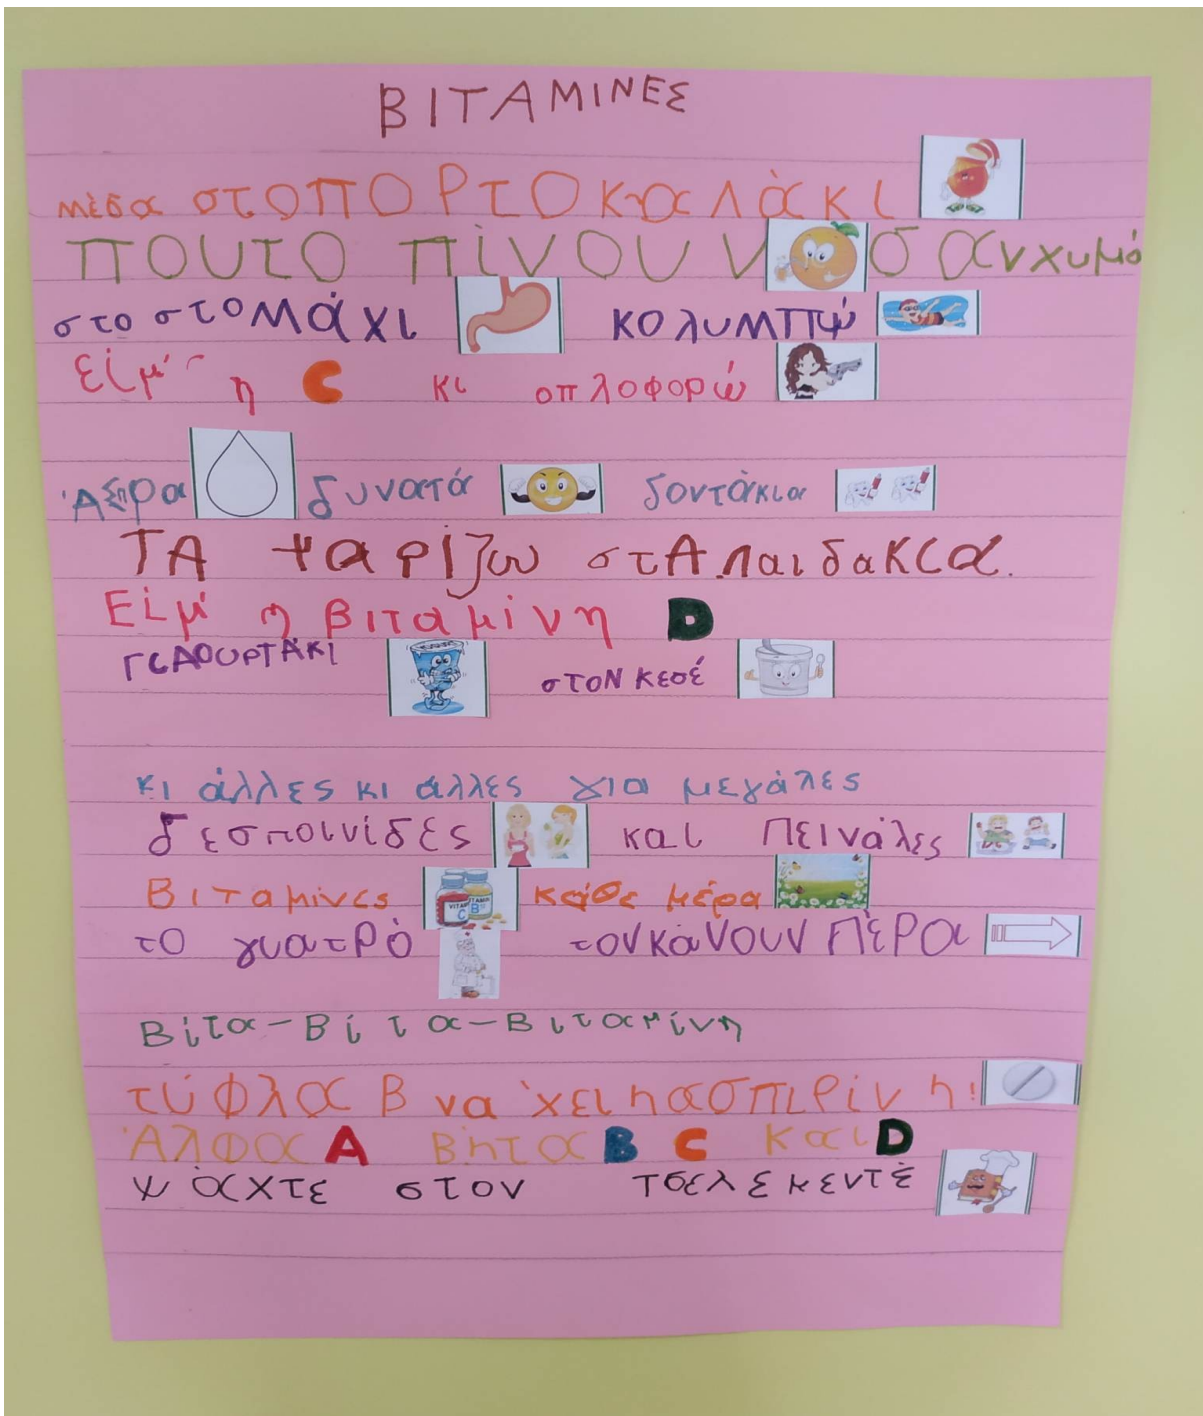 ΒΙΤΑΜΙΝΕΣ
μέσα στοΠΟΡΤΟΚαΛάΚι
ΠΟΥΤΟ πίνουν σαν χυμό
στο στομάχι κολυμΠώ
Είμ' η C κι οπλοφορώ
'Ασπρα δυνατά δοντάκια
ΤΑ χαρίζω στΑ παιδακια.
Είμ' η βιταμίνη D
ΓιΑΟυρΤΑΚι στον κεσέ
κι άλλες κι άλλες για μεγάλες
δεσποινίδες και πεινάλες
Βιταμίνες κάθε μέρα
VITA VITAMIN C B12
το γυατρό τονκάνουν ΠέΡα
Βίτα-Βίτα-Βιταμίνη
τύφλα Β να 'χει η ασπιρίνη!
'Αλφα Α Βήτα B C Και D
ψάχτε στον τσελεμεντέ